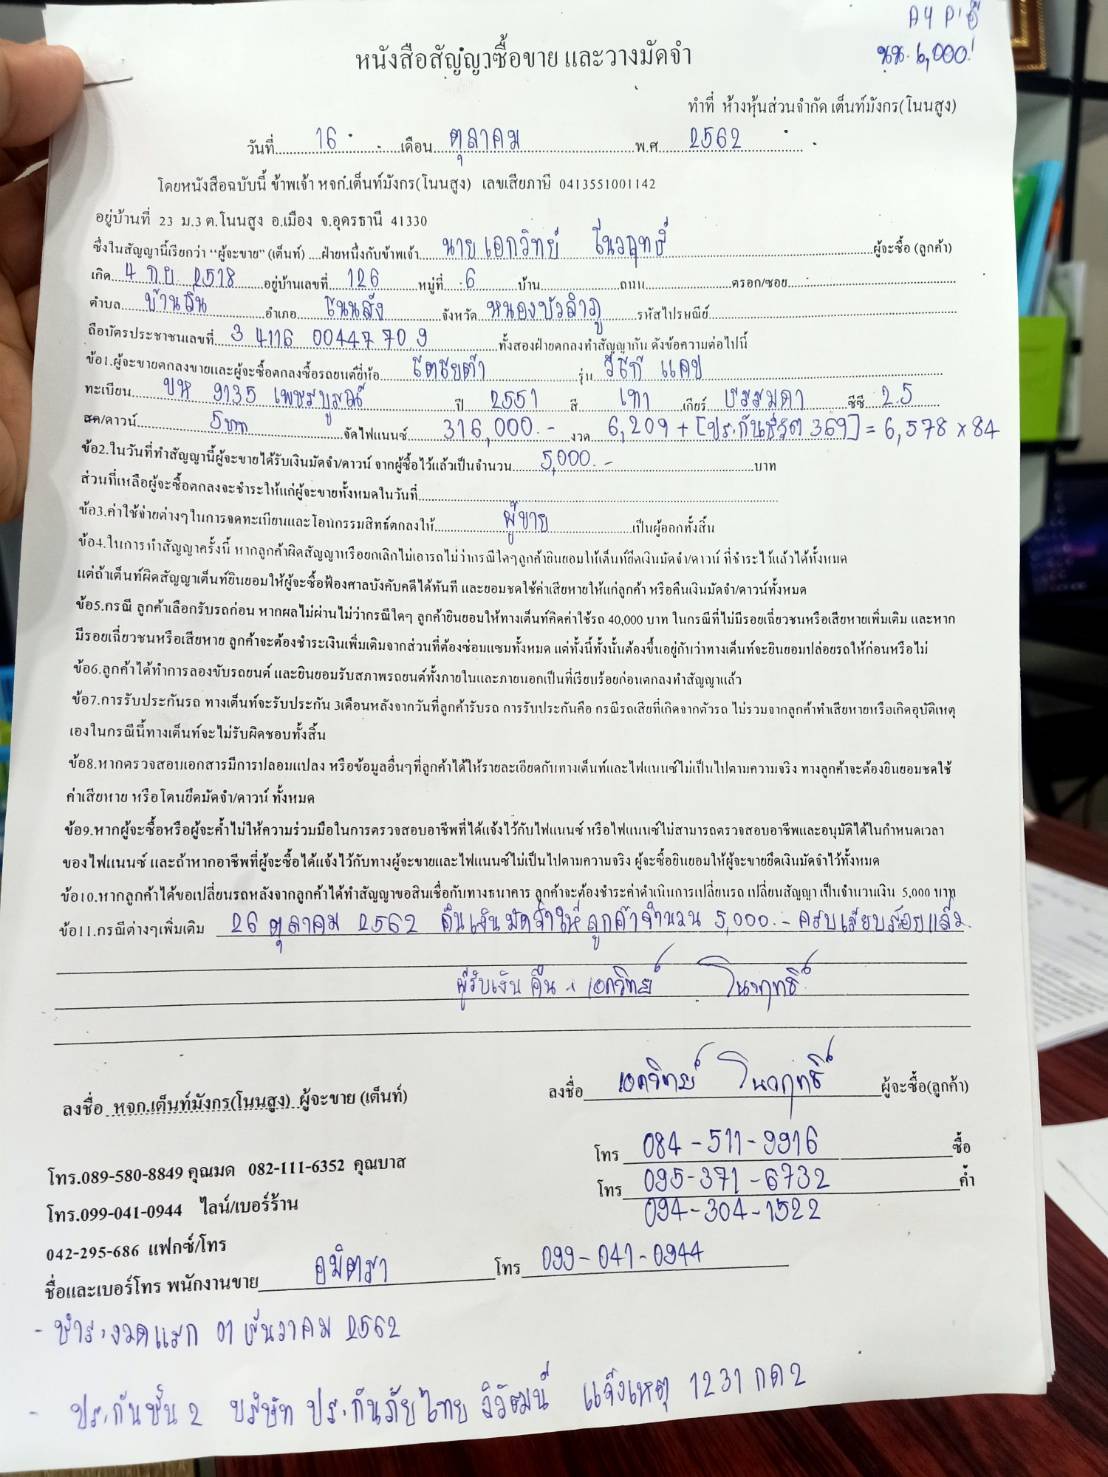 A4 P'
นน. 6,000!
หนังสือสัญญาซื้อขาย และวางมัดจำ
ทำที่ ห้างหุ้นส่วนจำกัด เต็นท์มังกร(โนนสูง)
วันที่ 16 เดือน ตุลาคม พ.ศ 2562
โดยหนังสือฉบับนี้ ข้าพเจ้า หจก.เต็นท์มังกร(โนนสูง) เลขเสียภาษี 0413551001142
อยู่บ้านที่ 23 ม.3 ต.โนนสูง อ.เมือง จ.อุดรธานี 41330
ซึ่งในสัญญานี้เรียกว่า "ผู้จะขาย" (เต็นท์) ....ฝ่ายหนึ่งกับข้าพเจ้า นาย เอกวิทย์ โนวฤทธิ์ ผู้จะซื้อ (ลูกค้า)
เกิด 4 ก.ย 2518 อยู่บ้านเลขที่ 126 หมู่ที่ 6 บ้าน ถนน ตรอก/ซอย
ตำบล บ้านถิ่น อำเภอ โนนสัง จังหวัด หนองบัวลำภู รหัสไปรษณีย์
ถือบัตรประชาชนเลขที่ 3 4116 00447 70 9 ทั้งสองฝ่ายตกลงทำสัญญากัน ดังข้อความต่อไปนี้
ข้อ1.ผู้จะขายตกลงขายและผู้จะซื้อตกลงซื้อรถยนต์ยี่ห้อ โตโยต้า รุ่น วีโก้ แคป
ทะเบียน บห 9135 เพชรบูรณ์ ปี 2551 สี เทา เกียร์ ธรรมดา ซีซี 2.5
สด/ดาวน์ 5บาท จัดไฟแนนซ์ 316,000.- งวด 6,209 + [ประกันชีวิต 369] = 6,578 x 84
ข้อ2.ในวันที่ทำสัญญานี้ผู้จะขายได้รับเงินมัดจำ/ดาวน์ จากผู้ซื้อไว้แล้วเป็นจำนวน 5,000.- บาท
ส่วนที่เหลือผู้จะซื้อตกลงจะชำระให้แก่ผู้จะขายทั้งหมดในวันที่
ข้อ3.ค่าใช้จ่ายต่างๆในการจดทะเบียนและโอนกรรมสิทธิ์ตกลงให้ ผู้ขาย เป็นผู้ออกทั้งสิ้น
ข้อ4.ในการทำสัญญาครั้งนี้ หากลูกค้าผิดสัญญาหรือยกเลิกไม่เอารถไม่ว่ากรณีใดๆลูกค้ายินยอมให้เต็นท์ยึดเงินมัดจำ/ดาวน์ ที่ชำระไว้แล้วได้ทั้งหมด
แต่ถ้าเต็นท์ผิดสัญญาเต็นท์ยินยอมให้ผู้จะซื้อฟ้องศาลบังคับคดีได้ทันที และยอมชดใช้ค่าเสียหายให้แก่ลูกค้า หรือคืนเงินมัดจำ/ดาวน์ทั้งหมด
ข้อ5.กรณี ลูกค้าเลือกรับรถก่อน หากผลไม่ผ่านไม่ว่ากรณีใดๆ ลูกค้ายินยอมให้ทางเต็นท์คิดค่าใช้รถ 40,000 บาท ในกรณีที่ไม่มีรอยเฉี่ยวชนหรือเสียหายเพิ่มเติม และหาก
มีรอยเฉี่ยวชนหรือเสียหาย ลูกค้าจะต้องชำระเงินเพิ่มเติมจากส่วนที่ต้องซ่อมแซมทั้งหมด แต่ทั้งนี้ทั้งนั้นต้องขึ้นอยู่กับว่าทางเต็นท์จะยินยอมปล่อยรถให้ก่อนหรือไม่
ข้อ6.ลูกค้าได้ทำการลองขับรถยนต์ และยินยอมรับสภาพรถยนต์ทั้งภายในและภายนอกเป็นที่เรียบร้อยก่อนตกลงทำสัญญาแล้ว
ข้อ7.การรับประกันรถ ทางเต็นท์จะรับประกัน 3เดือนหลังจากวันที่ลูกค้ารับรถ การรับประกันคือ กรณีรถเสียที่เกิดจากตัวรถ ไม่รวมจากลูกค้าทำเสียหายหรือเกิดอุบัติเหตุ
เองในกรณีนี้ทางเต็นท์จะไม่รับผิดชอบทั้งสิ้น
ข้อ8.หากตรวจสอบเอกสารมีการปลอมแปลง หรือข้อมูลอื่นๆที่ลูกค้าได้ให้รายละเอียดกับทางเต็นท์และไฟแนนซ์ไม่เป็นไปตามความจริง ทางลูกค้าจะต้องยินยอมชดใช้
ค่าเสียหาย หรือโดนยึดมัดจำ/ดาวน์ ทั้งหมด
ข้อ9.หากผู้จะซื้อหรือผู้จะค้ำไม่ให้ความร่วมมือในการตรวจสอบอาชีพที่ได้แจ้งไว้กับไฟแนนซ์ หรือไฟแนนซ์ไม่สามารถตรวจสอบอาชีพและอนุมัติได้ในกำหนดเวลา
ของไฟแนนซ์ และถ้าหากอาชีพที่ผู้จะซื้อได้แจ้งไว้กับทางผู้จะขายและไฟแนนซ์ไม่เป็นไปตามความจริง ผู้จะซื้อยินยอมให้ผู้จะขายยึดเงินมัดจำไว้ทั้งหมด
ข้อ10.หากลูกค้าได้ขอเปลี่ยนรถหลังจากลูกค้าได้ทำสัญญาขอสินเชื่อกับทางธนาคาร ลูกค้าจะต้องชำระค่าดำเนินการเปลี่ยนรถ เปลี่ยนสัญญา เป็นจำนวนเงิน 5,000 บาท
ข้อ11.กรณีต่างๆเพิ่มเติม 26 ตุลาคม 2562 คืนเงินมัดจำให้ลูกค้าจำนวน 5,000.- ครบเรียบร้อยแล้ว
ผู้รับเงินคืน เอกวิทย์ โนวฤทธิ์
ลงชื่อ หจก.เต็นท์มังกร(โนนสูง) ผู้จะขาย (เต็นท์)
ลงชื่อ เอกวิทย์ โนวฤทธิ์ ผู้จะซื้อ(ลูกค้า)
โทร 084-511-9916 ซื้อ
โทร.089-580-8849 คุณมด 082-111-6352 คุณบาส
โทร 095-371-6732 ค้ำ
โทร.099-041-0944 ไลน์/เบอร์ร้าน
094-304-1522
042-295-686 แฟกซ์/โทร
ชื่อและเบอร์โทร พนักงานขาย อมิตรา โทร 099-041-0944
- ชำระงวดแรก 01 ธันวาคม 2562
- ประกันชั้น 2 บริษัท ประกันภัยไทยวิวัฒน์ แจ้งเหตุ 1231 กด 2